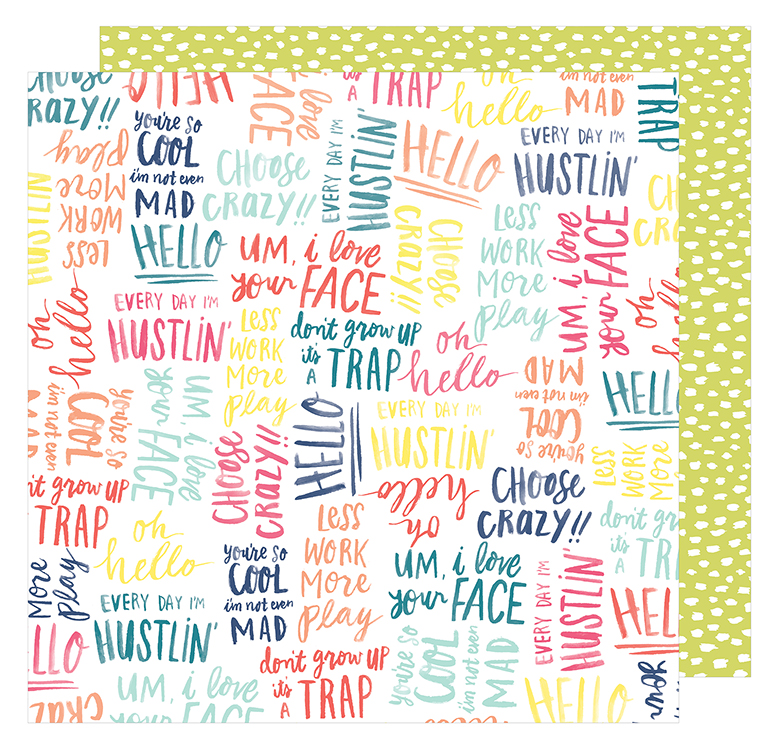 CHOOSE
CRAZY!!
HELLO
i love
FACE
it's
A TRAP
oh
hello
i'm not even
MAD
TRAP
play
More
WORK
Less
you're so
COOL
i'm not even
MAD
CHOOSE
CRAZY!!
EVERY DAY I'M
HUSTLIN'
HELLO
EVERY DAY I'M
HUSTLIN'
HELLO
UM, i love
your FACE
CHOOSE
CRAZY!!
Less
WORK
More
play
UM, i love
your FACE
oh
hello
EVERY DAY I'M
HUSTLIN'
Less
WORK
More
play
don't grow UP
it's
A TRAP
oh
hello
you're so
COOL
i'm not even
MAD
HELLO
you're so
COOL
i'm not even
MAD
UM, i love
your FACE
CHOOSE
CRAZY!!
HELLO
EVERY DAY I'M
HUSTLIN'
oh
hello
CHOOSE
CRAZY!!
Less
WORK
More
grow UP
TRAP
oh
hello
Less
WORK
More
play
don't grow
it's
A
More
play
you're so
COOL
i'm not even
MAD
UM, i love
your FACE
EVERY DAY I'M
HUSTLIN'
EVERY DAY I'M
HUSTLIN'
don't grow UP
it's
A TRAP
you're so
COOL
i'm not even
MAD
UM, i love
your FACE
HELLO
your